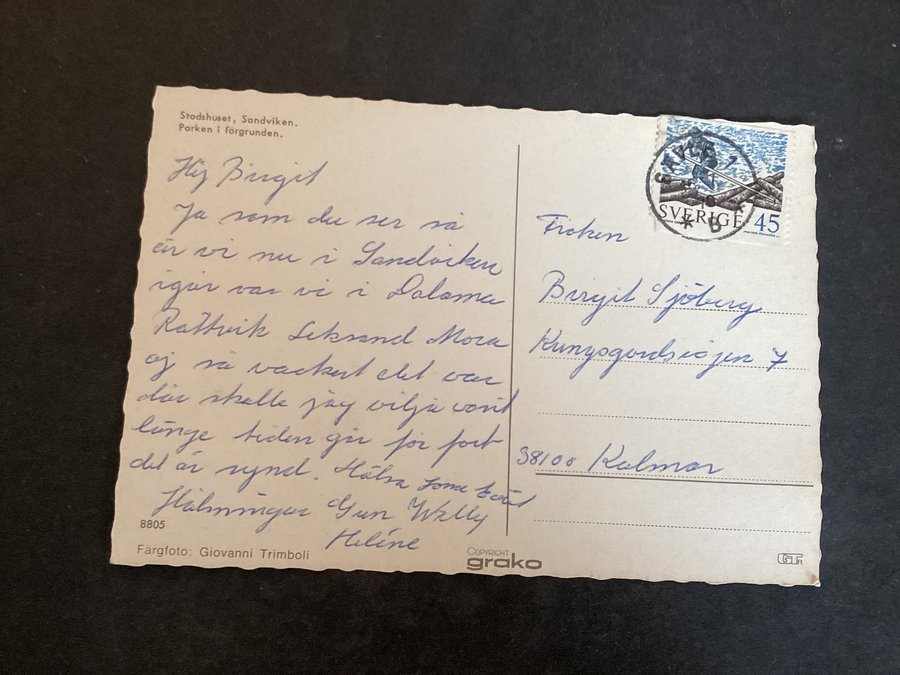 Stadshuset, Sandviken.
Parken i förgrunden.
Hej Birgit
Ja som du ser så
är vi nu i Sandviken
igår var vi i Dalarna
Rättvik Leksand Mora
oj så vackert det var
där skulle jag vilja varit
länge tiden går för fort
det är synd. Hälsa
Hälsningar Gun Willy
Heléne
8805
Färgfoto: Giovanni Trimboli
COPYRIGHT
grako
GÄVLE 1
SVERIGE 45
Fröken
Birgit Sjöberg
Kungsgårdsvägen 7
38100 Kalmar